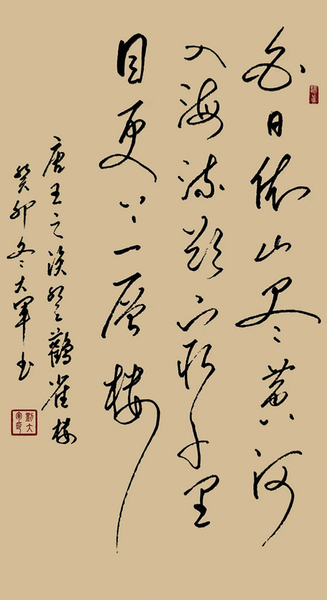 白日依山尽黄河
入海流欲穷千里
目更上一層楼
唐王之涣登鸛雀楼
癸卯冬大軍书